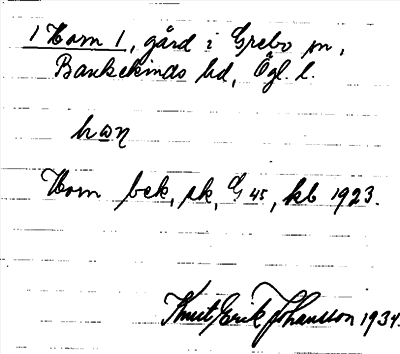 1 Horn 1, gård i Grebo sn,
Bankekinds hd, Ögl. l.
Horn bek, sk, G 45, kb 1923.
Knut Erik Johansson 1934.